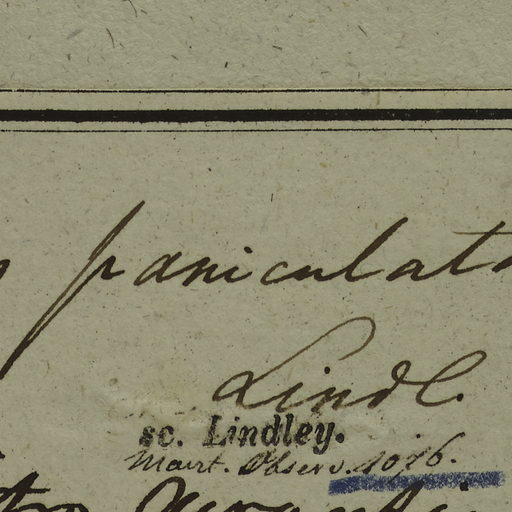 paniculata
Lindl.
sc. Lindley.
Mart. Observ. 1076.